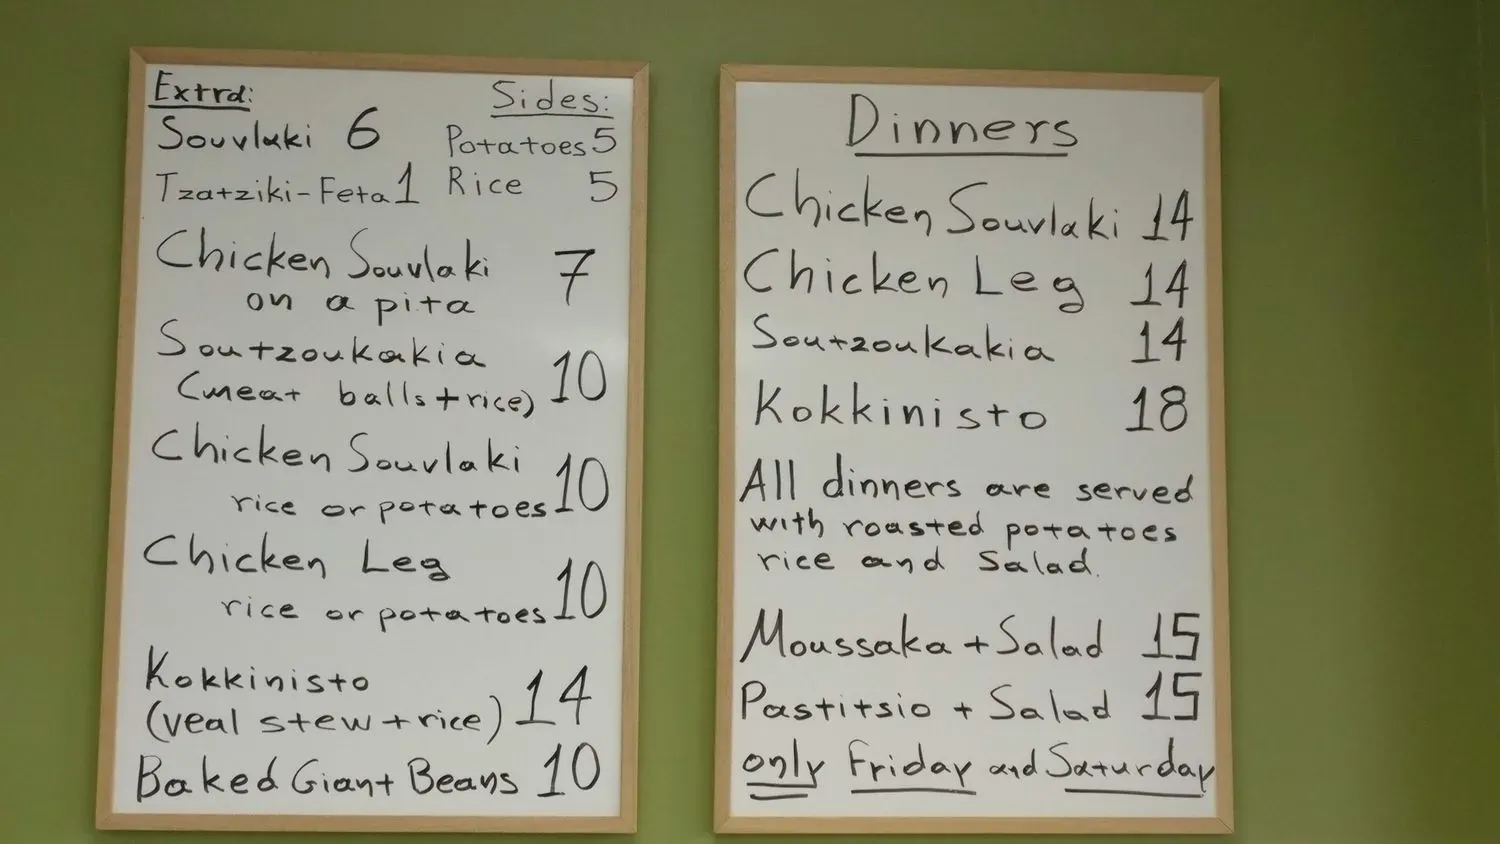 Extra:
Souvlaki 6
Tzatziki-Feta 1
Sides:
Potatoes 5
Rice 5
Chicken Souvlaki 7
on a pita
Soutzoukakia 10
(meat balls+rice)
Chicken Souvlaki 10
rice or potatoes
Chicken Leg 10
rice or potatoes
Kokkinisto 14
(veal stew+rice)
Baked Giant Beans 10
Dinners
Chicken Souvlaki 14
Chicken Leg 14
Soutzoukakia 14
Kokkinisto 18
All dinners are served
with roasted potatoes
rice and Salad.
Moussaka + Salad 15
Pastitsio + Salad 15
only Friday and Saturday